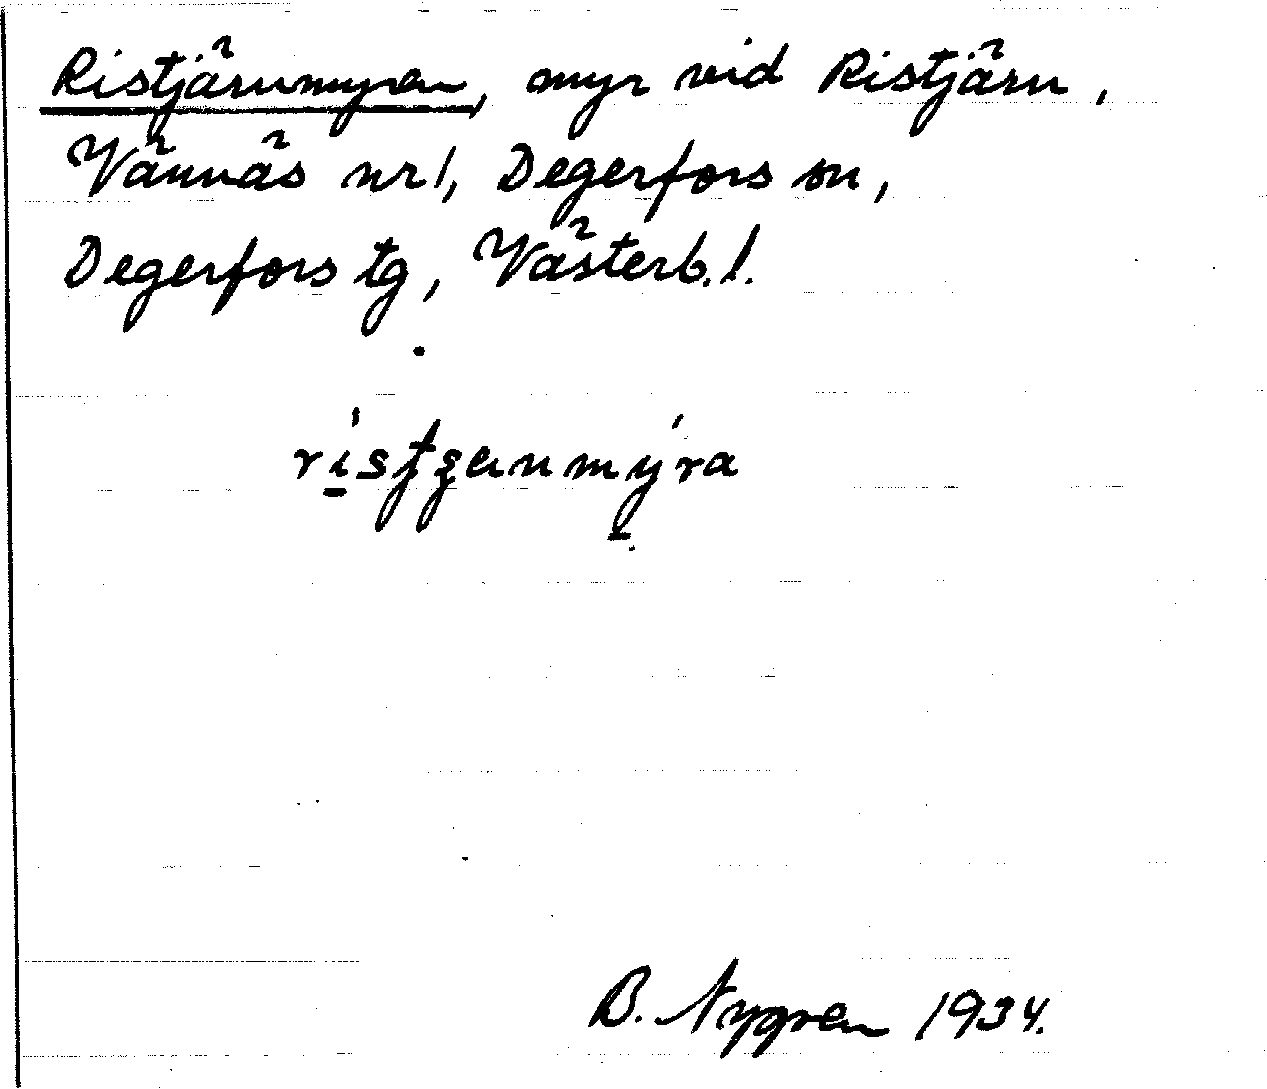 Ristjärnmyran, myr vid Ristjärn,
Vännäs nr 1, Degerfors sn,
Degerfors tg, Västerb. l.
B. Nygren 1934.